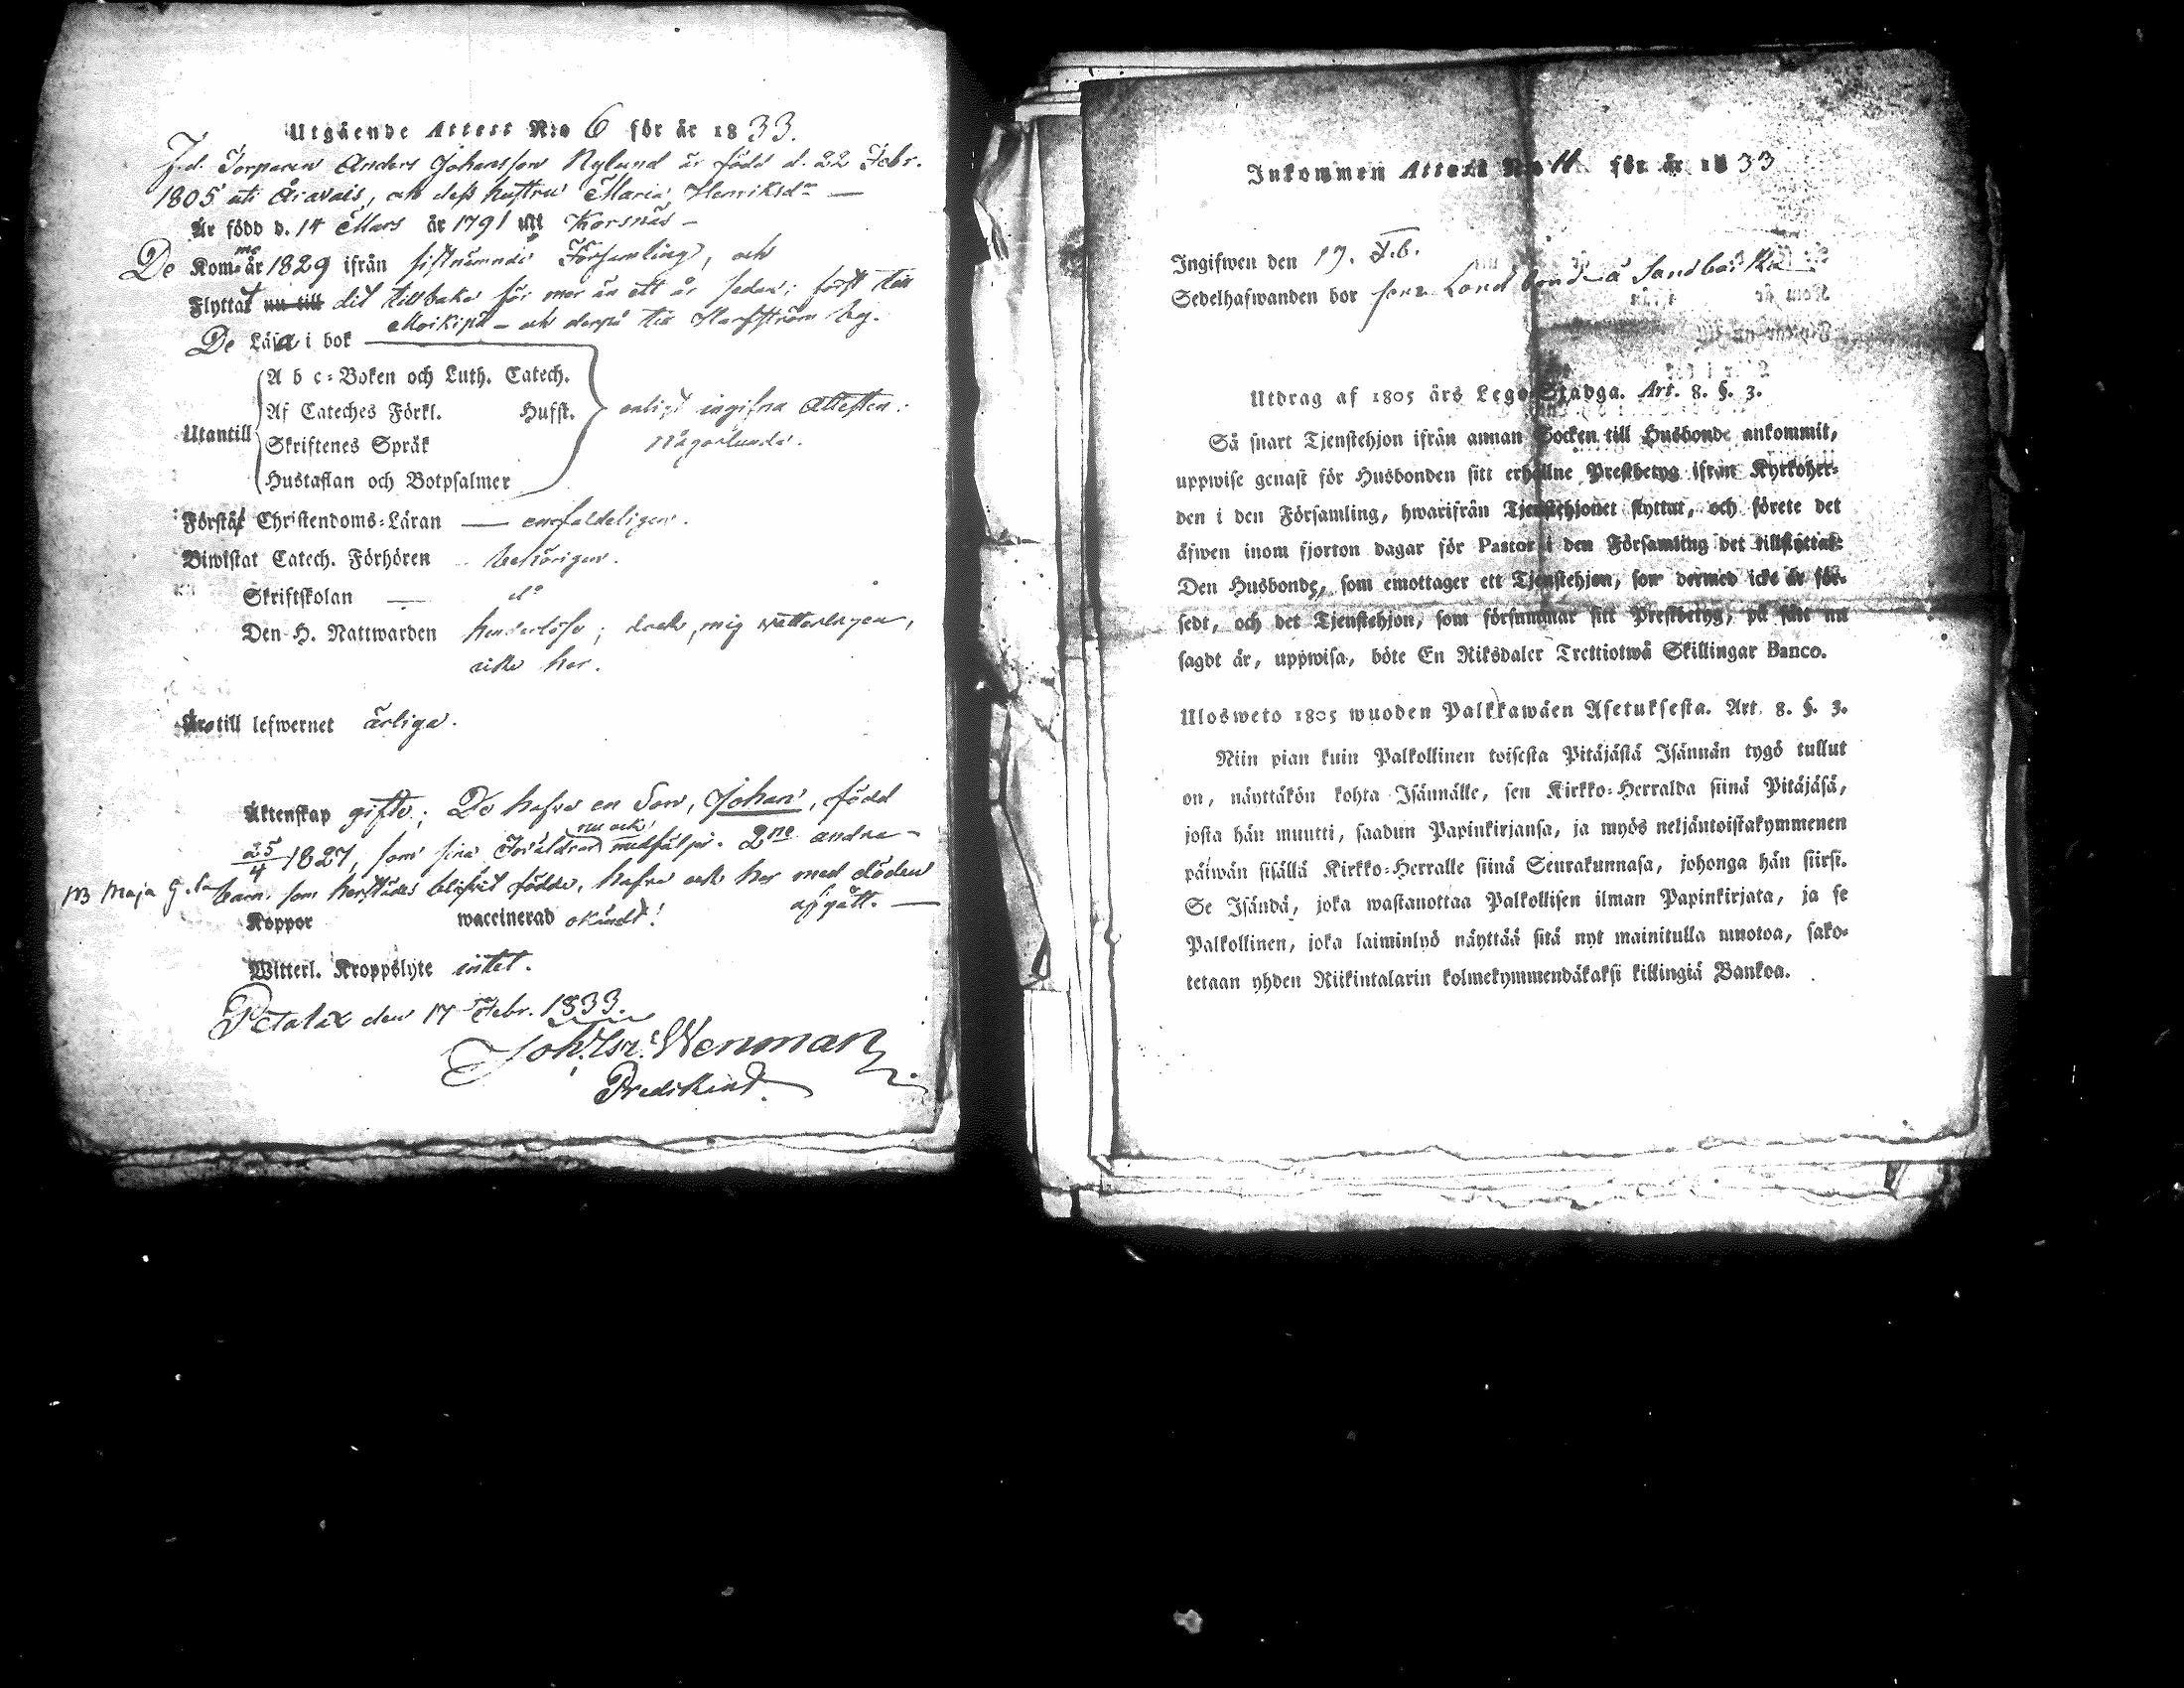 Utgående Attest N:o 6 för år 1833.
F.d. Torparen Anders Johansson Nylund är född d. 22 Febr.
1805 uti Oravais, och dess hustru Maria Henriksdr —
Är född d. 14 Mars år 1791 uti Korsnäs —
De Kommo år 1829 ifrån sistnämnde Församling, och
Flyttat nu till dit tillbaka för mer än ett år sedan; först till
Moikipä — och derpå till Harfström by.
De Läsa i bok
A b c-Boken och Luth. Catech.
Af Cateches Förkl. Hufst.
Utantill enligt ingifna Attester:
Skriftenes Språk någorlunda.
Hustaflan och Botpsalmer
Förstå Christendoms-Läran — enfaldeligen.
Biwistat Catech. Förhören behörigen.
Skriftskolan — d:o
Den H. Nattwarden dock, mig vetterligen,
icke här.
Äro till lefwernet ärliga.
Äktenskap gifte; De hafva en Son, Johan, född
25/4 1827, som sina Föräldrar nu ock medföljer. 2ne andra
NB Maja G. barn, som härstädes blifvit födde, hafva ock här med döden
afgått. —
Koppor waccinerad okändt!
Witterl. Kroppslyte intet.
Petalax den 17 Febr. 1833.
Joh. Wenman
Predikant.
Inkommen Attest N:o 11 för år 1833
Ingifwen den 19. Feb.
Sedelhafwanden bor som Landbonde å Sandbacka
Utdrag af 1805 års Lego-Stadga. Art. 8. §. 3.
Så snart Tjenstehjon ifrån annan Socken till Husbonde ankommit,
uppwise genast för Husbonden sitt erhållne Prestbetyg ifrån Kyrkoher-
den i den Församling, hwarifrån Tjenstehjonet flyttat, och förete det
äfwen inom fjorton dagar för Pastor i den Församling det tillflyttat:
Den Husbonde, som emottager ett Tjenstehjon, som dermed icke är för-
sedt, och det Tjenstehjon, som försummar sitt Prestbetyg, på sätt nu
sagdt är, uppwisa, böte En Riksdaler Trettiotwå Skillingar Banco.
Ulosweto 1805 wuoden Palkkawäen Asetuksesta. Art. 8. §. 3.
Niin pian kuin Palkollinen toisesta Pitäjästä Isännän tygö tullut
on, näyttäkön kohta Isännälle, sen Kirkko-Herralda siinä Pitäjäsä,
josta hän muutti, saadun Papinkirjansa, ja myös neljäntoistakymmenen
päiwän sisällä Kirkko-Herralle siinä Seurakunnasa, johonga hän siirsi.
Se Isändä, joka wastanottaa Palkollisen ilman Papinkirjata, ja se
Palkollinen, joka laiminlyö näyttää sitä nyt mainitulla muotoa, sako-
tetaan yhden Riikintalarin kolmekymmendäkaksi killingiä Bankoa.